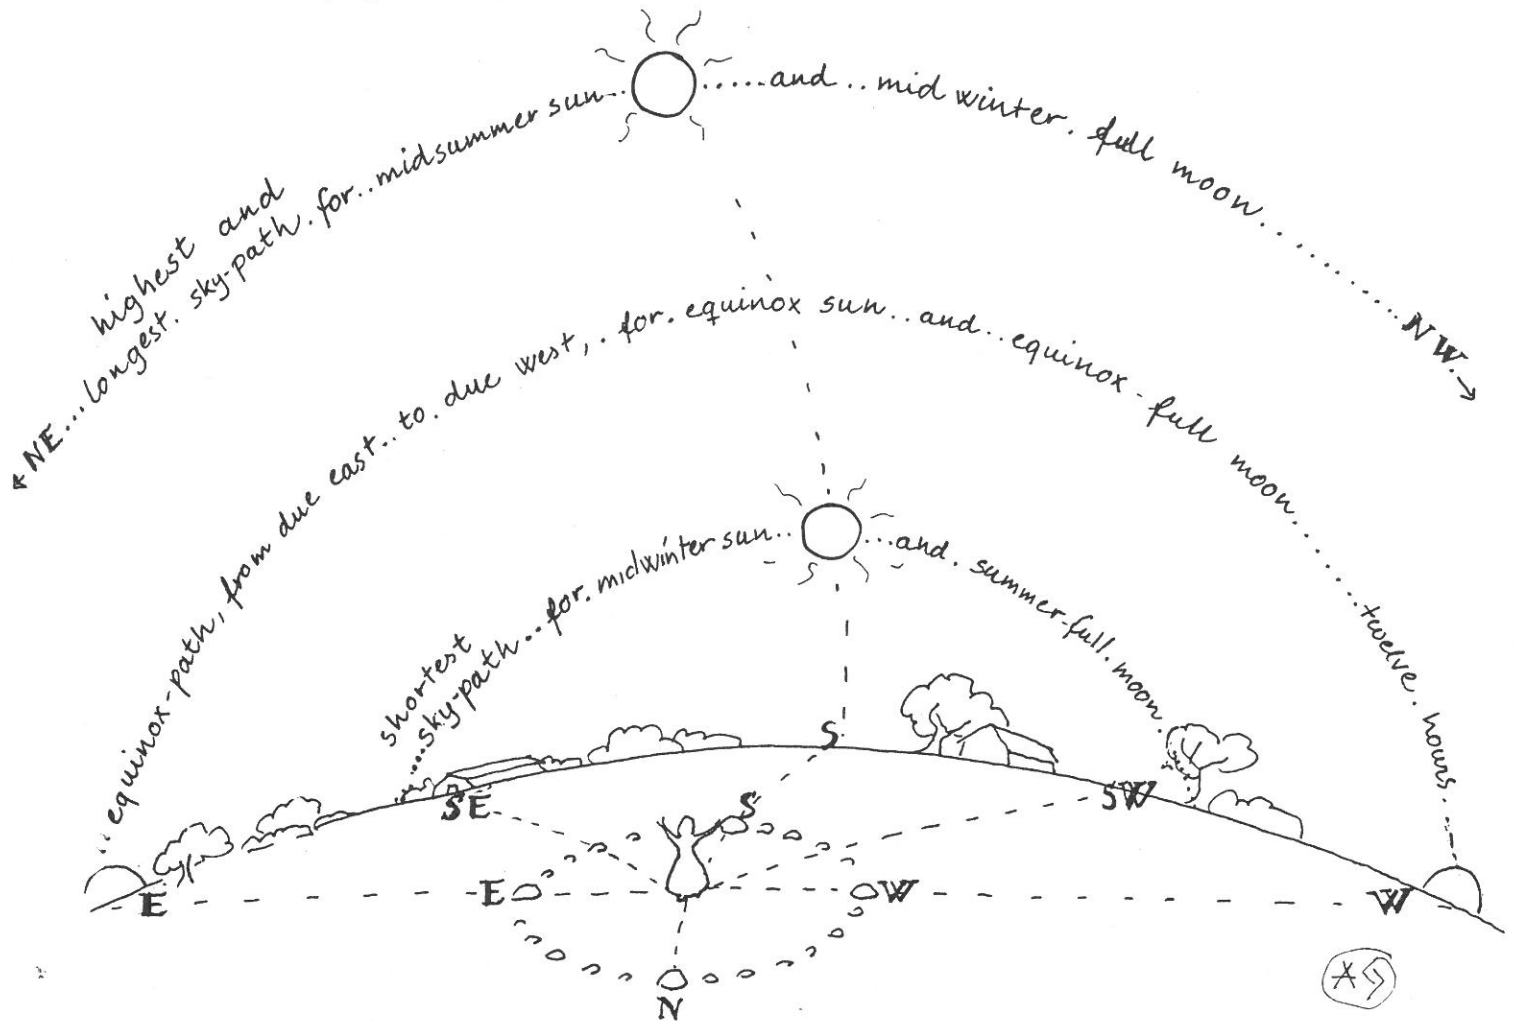 highest and
NE...longest. sky-path. for..midsummer sun-.. .....and..mid winter. full moon..............NW.
equinox-path, from due east..to.due west,.for.equinox sun..and..equinox-full moon..............twelve.hours.
shortest
....sky-path...for.midwinter sun.. ...and.summer-full.moon.
S
SE SW
S
E E W W
N
AG